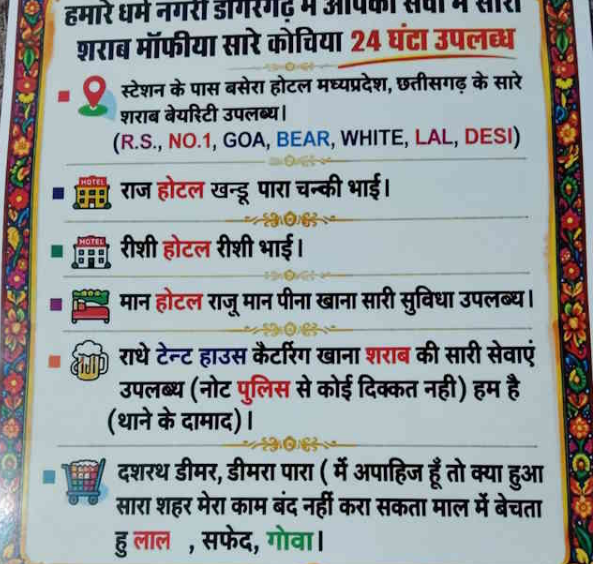 हमारे धर्म नगरी डोंगरगढ़ में आपकी सेवा में सारी
शराब मॉफीया सारे कोचिया 24 घंटा उपलब्ध
स्टेशन के पास बसेरा होटल मध्यप्रदेश, छत्तीसगढ़ के सारे
शराब बेयरिटी उपलब्य।
(R.S., NO.1, GOA, BEAR, WHITE, LAL, DESI)
HOTEL
राज होटल खन्डू पारा चन्की भाई।
HOTEL
रीशी होटल रीशी भाई।
मान होटल राजू मान पीना खाना सारी सुविधा उपलब्य।
राधे टेन्ट हाउस कैटर्रिग खाना शराब की सारी सेवाएं
उपलब्य (नोट पुलिस से कोई दिक्कत नही) हम है
(थाने के दामाद)।
दशरथ डीमर, डीमरा पारा ( में अपाहिज हूँ तो क्या हुआ
सारा शहर मेरा काम बंद नहीं करा सकता माल में बेचता
हु लाल , सफेद, गोवा।